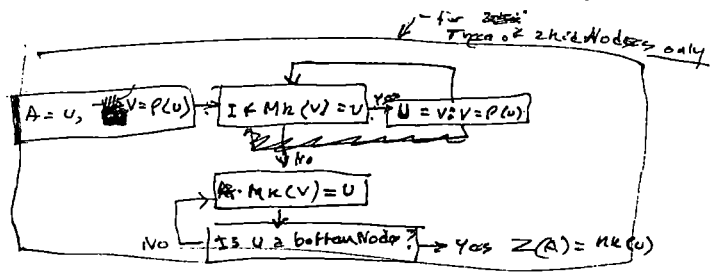 - for
Tree of 2 kid Nodes only
A = U, V = P(U)
If MK(V) = U
Yes
U = V: V = P(U)
No
MK(V) = U
Is U a bottom Node?
No
Yes Z(A) = NK(U)